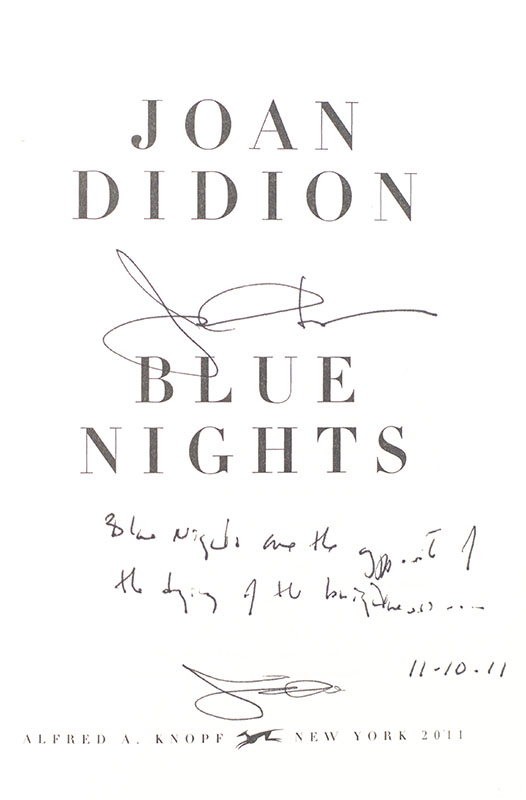 JOAN
DIDION
BLUE
NIGHTS
Blue Nights are the opposite of
the dying of the brightness....
11-10-11
ALFRED A. KNOPF NEW YORK 2011